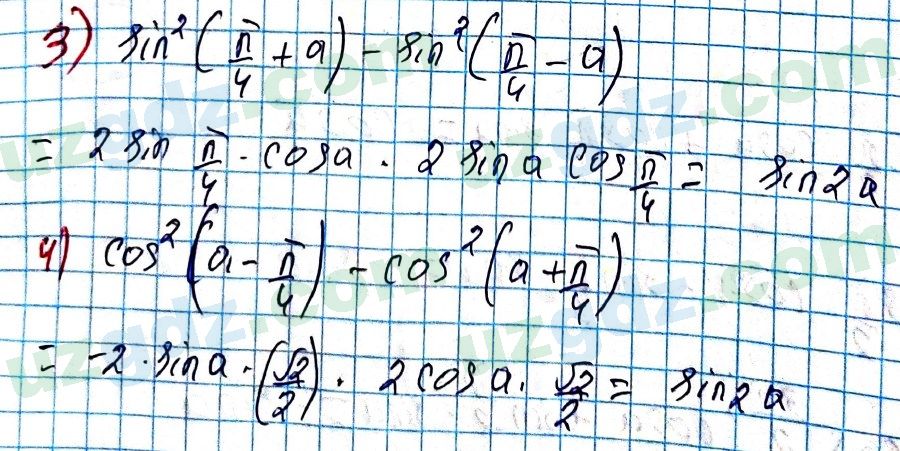 3) sin²(π/4 + a) - sin²(π/4 - a)
= 2 sin π/4 · cos a · 2 sin a cos π/4 = sin 2a
4) cos²(a - π/4) - cos²(a + π/4)
= -2 · sin a · (√2/2) · 2 cos a · √2/2 = sin 2a
uzgdz.com
uzgdz.com
uzgdz.com
uzgdz.com